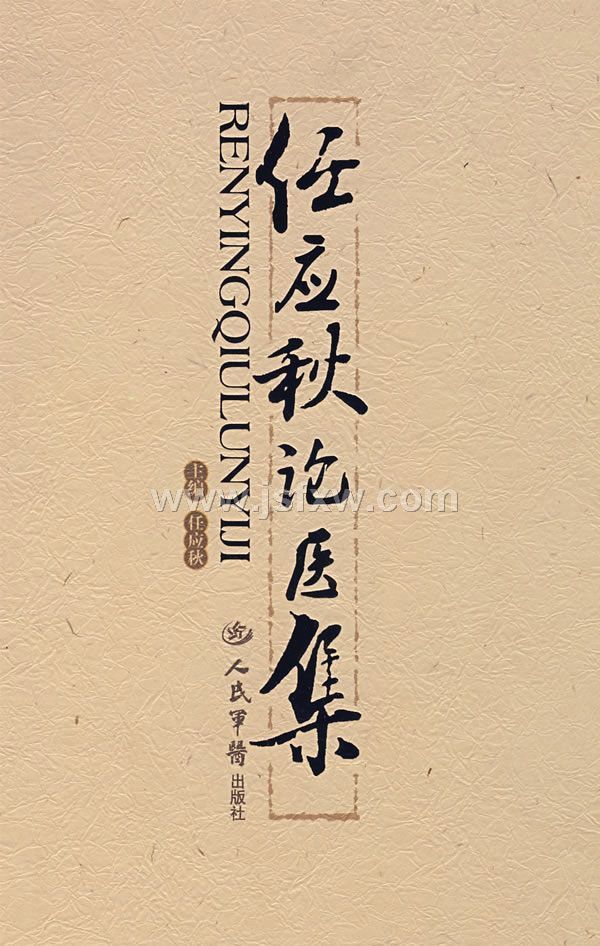 任应秋论医集
RENYINGQIULUNYIJI
主编 任应秋
人民軍醫出版社
www.jsfxw.com